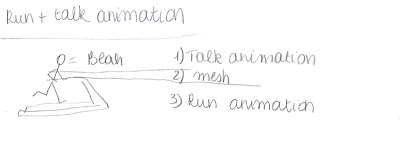 Run + talk animation
= Beah
1) Talk animation
2) mesh
3) Run animation